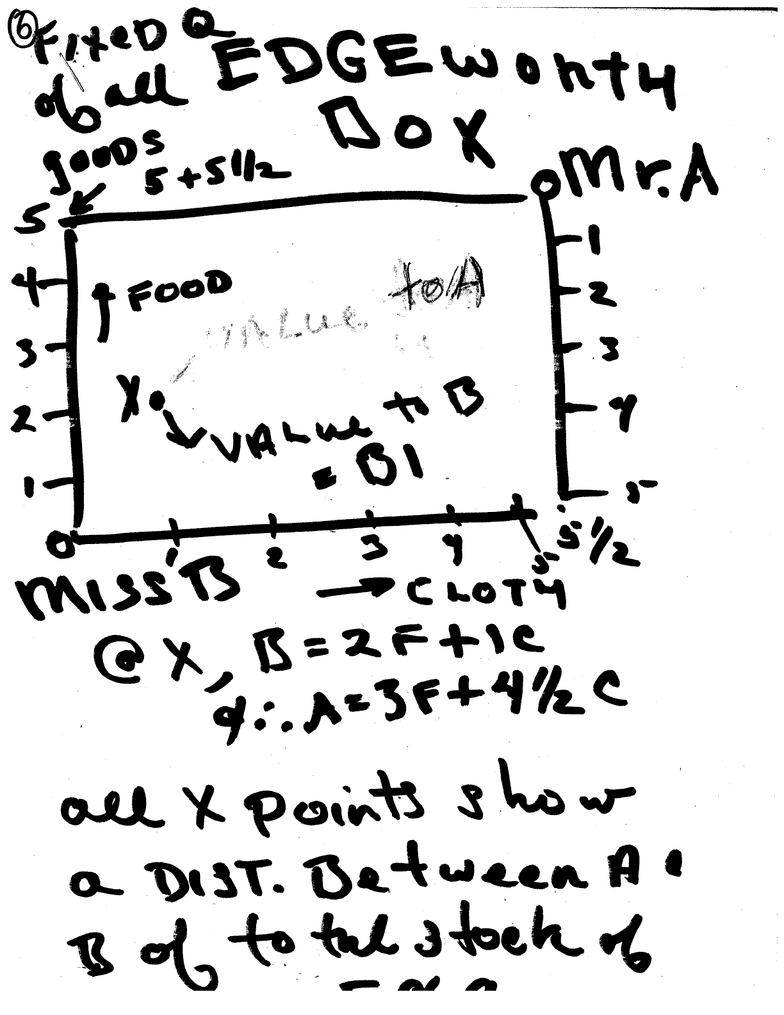 6
FixeD Q
of all
gooDs
EDGEworth
Box
5 + 5 1/2
Mr. A
5
4
3
2
1
0
1
2
3
4
5
↑ FOOD
VALue to A
X
VALue to B
= B1
1
2
3
4
5
5 1/2
MISS B
→ CLOTH
@ X, B = 2F + 1C
&∴ A = 3F + 4 1/2 C
all X points show
a DIST. Between A &
B of total stock of